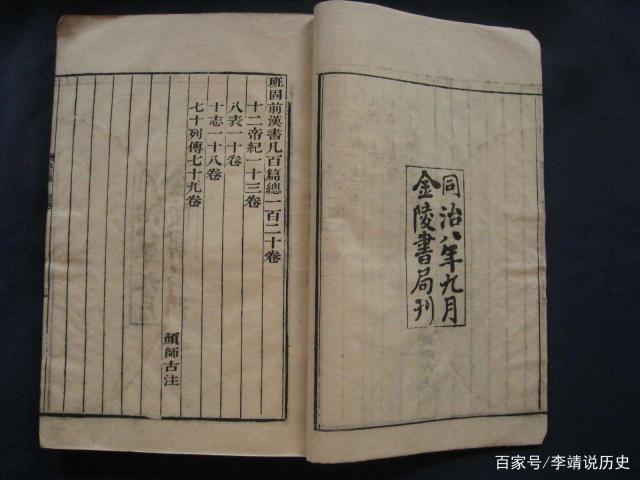 同治八年九月
金陵書局刊
班固前漢書凡百篇總一百二十卷
十二帝紀一十三卷
八表一十卷
十志一十八卷
七十列傳七十九卷
顏師古注
百家号/李靖说历史